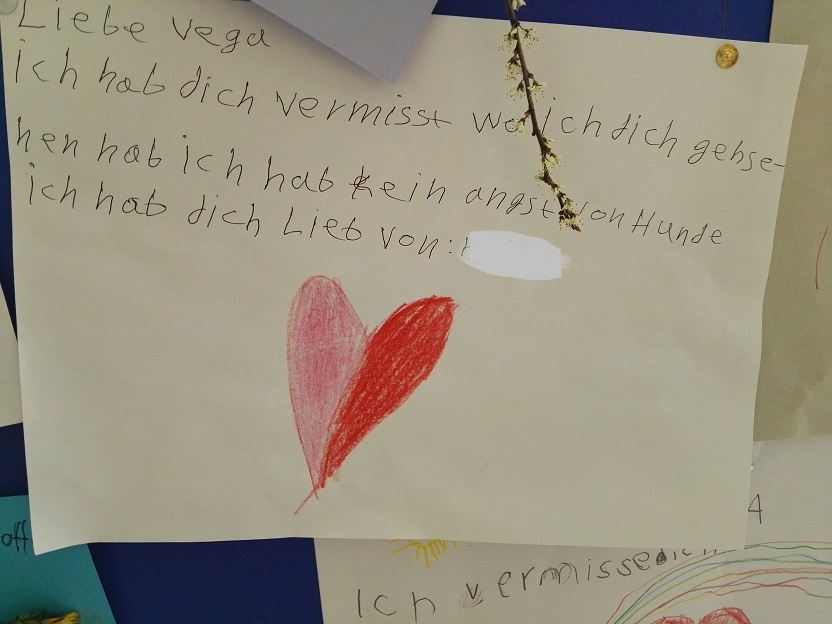 Liebe Vega
ich hab dich vermisst wo ich dich gehse-
hen hab ich hab kein angst von Hunde
ich hab dich Lieb von:
off
A
Ich vermisse dich